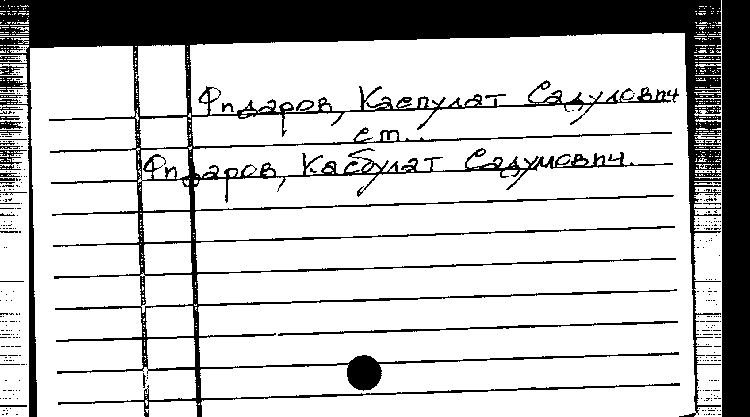 Фидаров, Каспулат Садулович
см.
Фидаров, Касбулат Садулович.